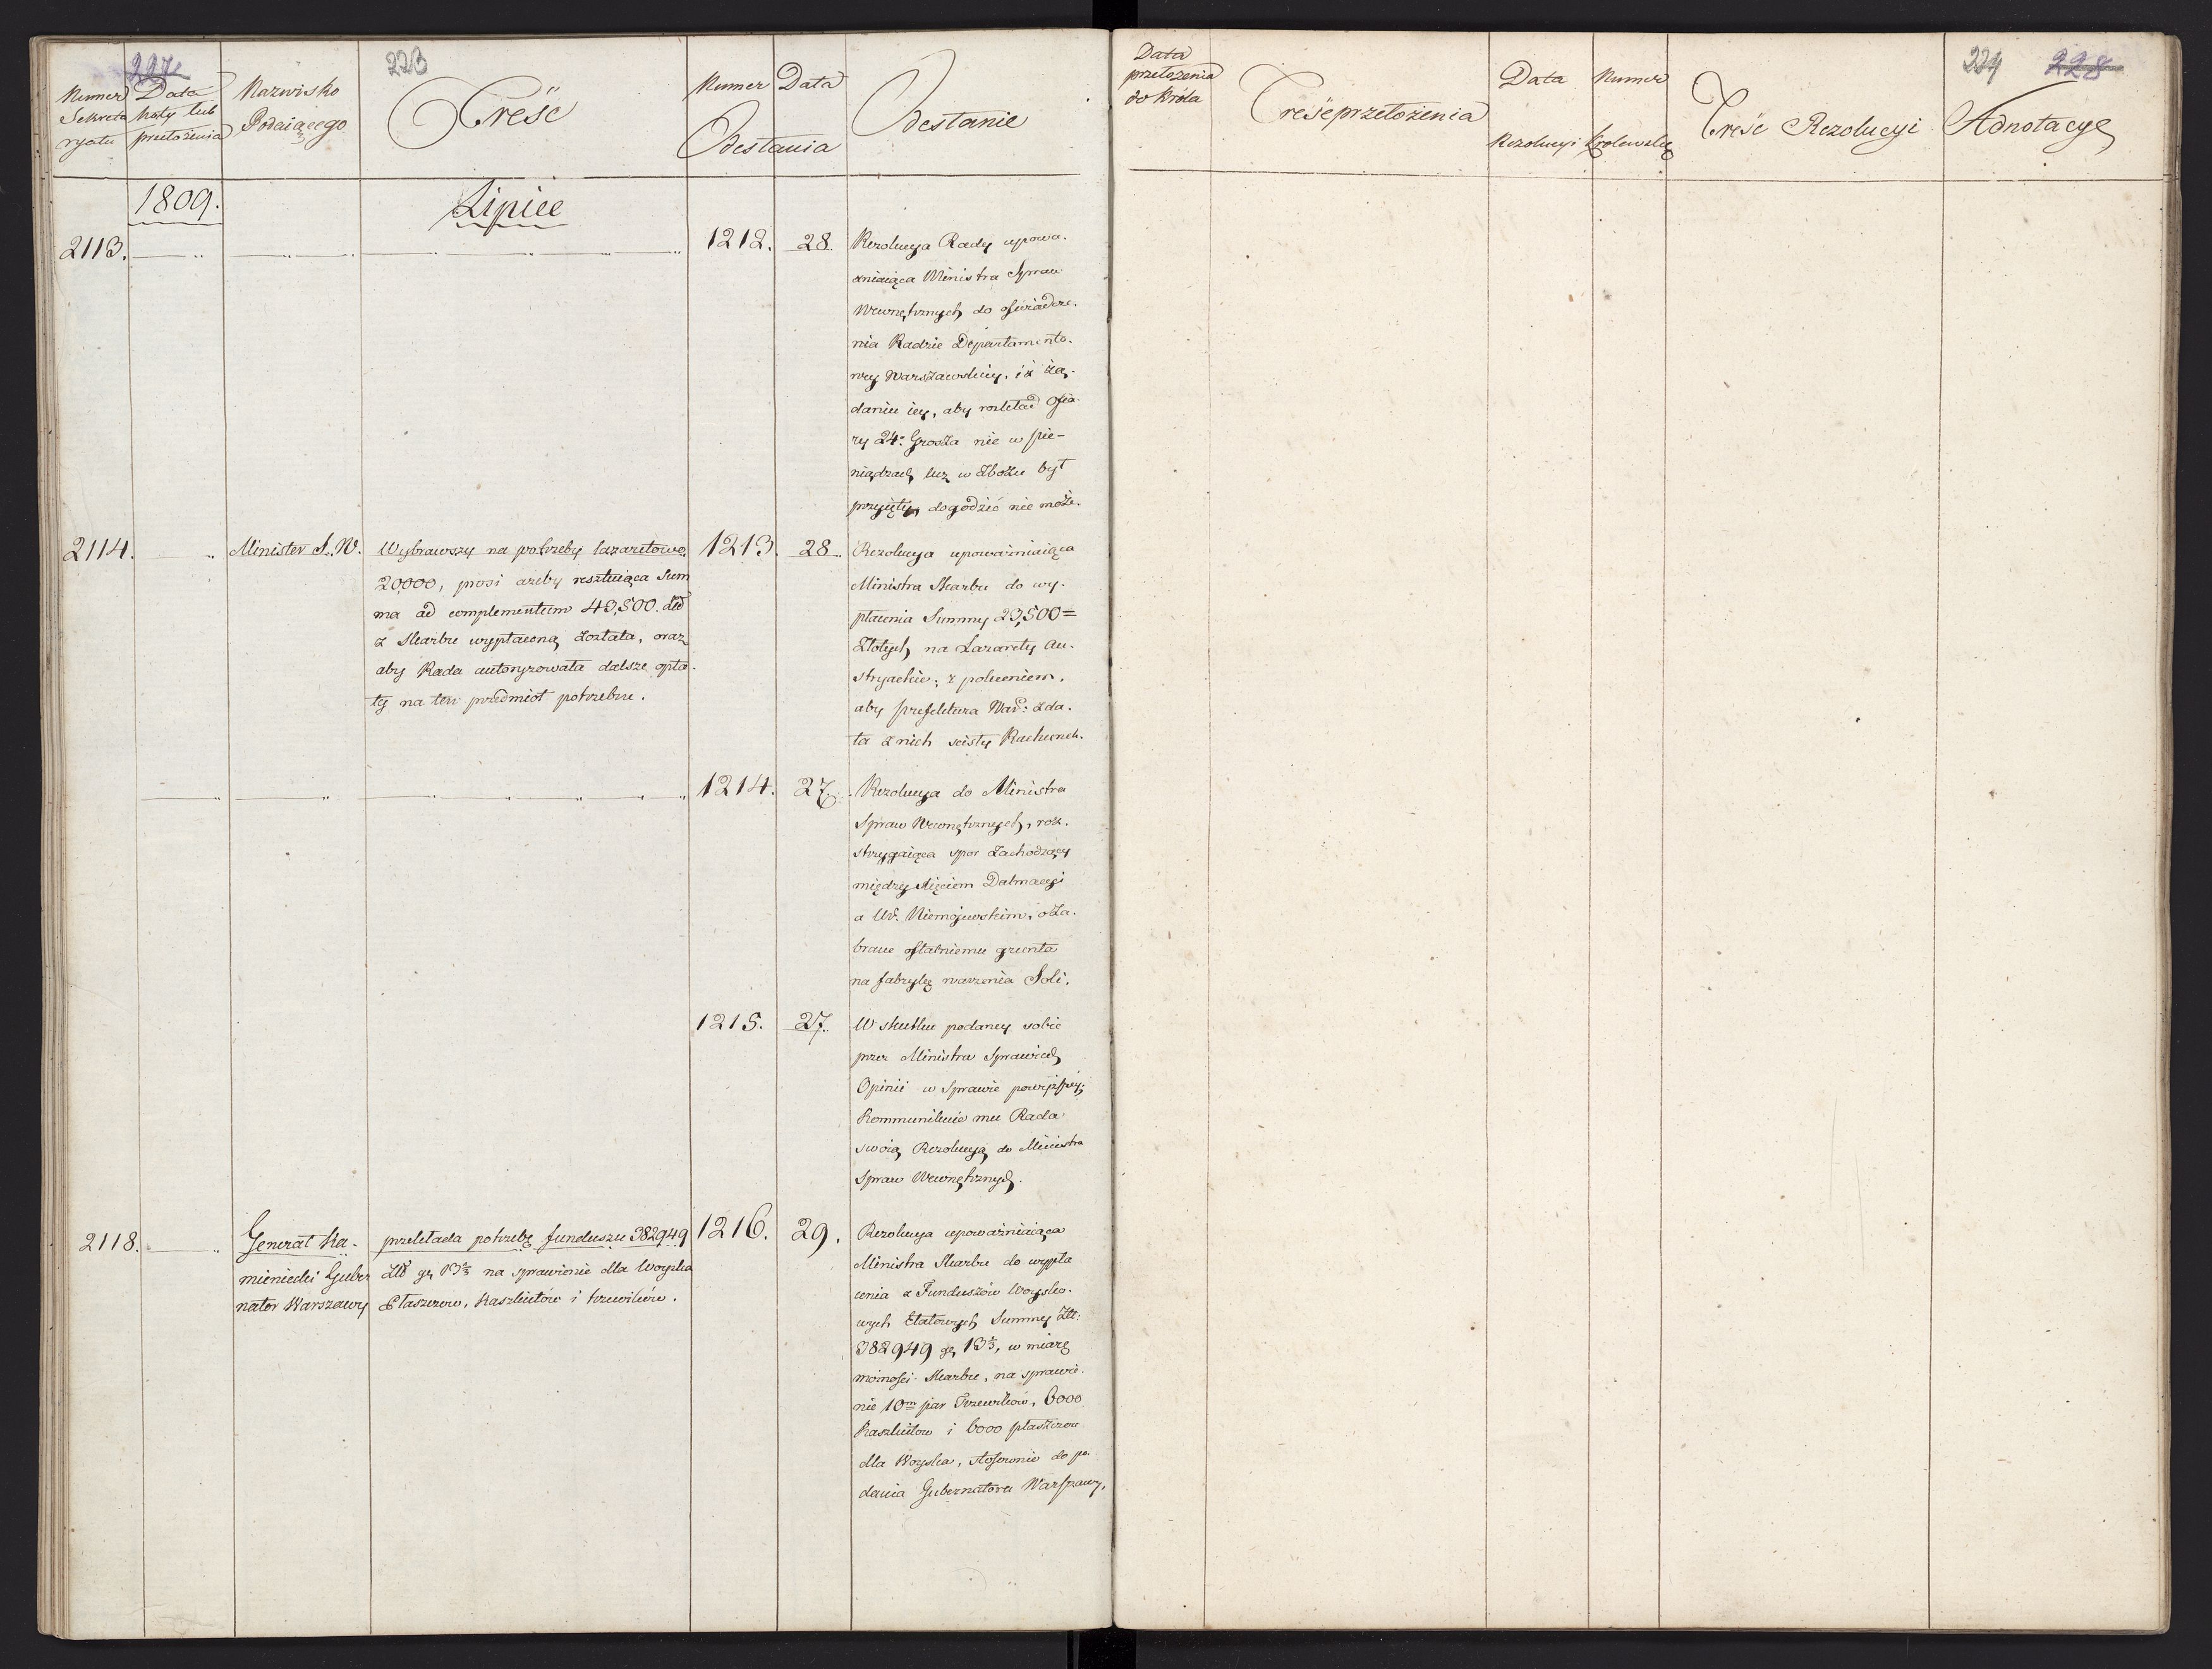 227
223
Numer Sekretaryatu
Data Noty lub przełożenia
Nazwisko Podaiącego
Treść
Numer Data
Odesłania
Odesłanie
1809.
Lipiec
2113.
1212. 28.
Rezolucya Rady upowa-
żniaiąca Ministra Spraw
Wewnętrznych do oświadcze-
nia Radzie Departamento-
wey Warszawskiey, iż żą-
daniu iey, aby rozkład ofia-
ry 24. Grosza nie w pie-
niądzach lecz w Zbożu był
przyięty, dogodzić nie może.
2114.
Minister S. W.
Wybrawszy na potrzeby lazaretowe
20,000, prosi ażeby resztuiąca Sum
ma ad complementum 43,500. Złł
z Skarbu wypłaconą została, oraz
aby Rada autoryzowała dalsze opła-
ty na ten przedmiot potrzebne.
1213. 28
Rezolucya upoważniaiąca
Ministra Skarbu do wy-
płacenia Summy 23,500=
Złotych na Lazarety Au-
stryackie; z poleceniem,
aby prefektura War: zda-
ła z nich ścisły Rachunek.
1214. 27.
Rezolucya do Ministra
Spraw Wewnętrznych, roz-
strzygaiąca spor zachodzący
między Xięciem Dalmacyi
a Ur. Niemojewskim, o za-
brane ostatniemu grunta
na fabrykę warzenia Soli.
1215. 27.
W skutku podaney sobie
przez Ministra Sprawied.
Opinii w Sprawie powyższey,
Kommunikuie mu Rada
swoią Rezolucyą do Ministra
Spraw Wewnętrznych.
2118.
Generał Ka-
mieniecki Guber
nator Warszawy
przekłada potrzebę funduszu 382949
Złł gr 13⅓ na sprawienie dla Woyska
Płaszczow, Kaszkietów i trzewików.
1216. 29.
Rezolucya upoważniaiąca
Ministra Skarbu do wypła
cenia z Funduszów Woysko-
wych Etatowych Summy Złł:
382949 gr 13⅓, w miarę
możności Skarbu, na sprawie-
nie 10m par Trzewików, 6000
Kaszkietow i 6000 płaszczow
dla Woyska, stosownie do po-
dania Gubernatora Warszawy.
Data przełożenia do Króla
Treść przełożenia
Data Numer
Rezolucyi Królewskiey
Treść Rezolucyi
224 228
Adnotacye